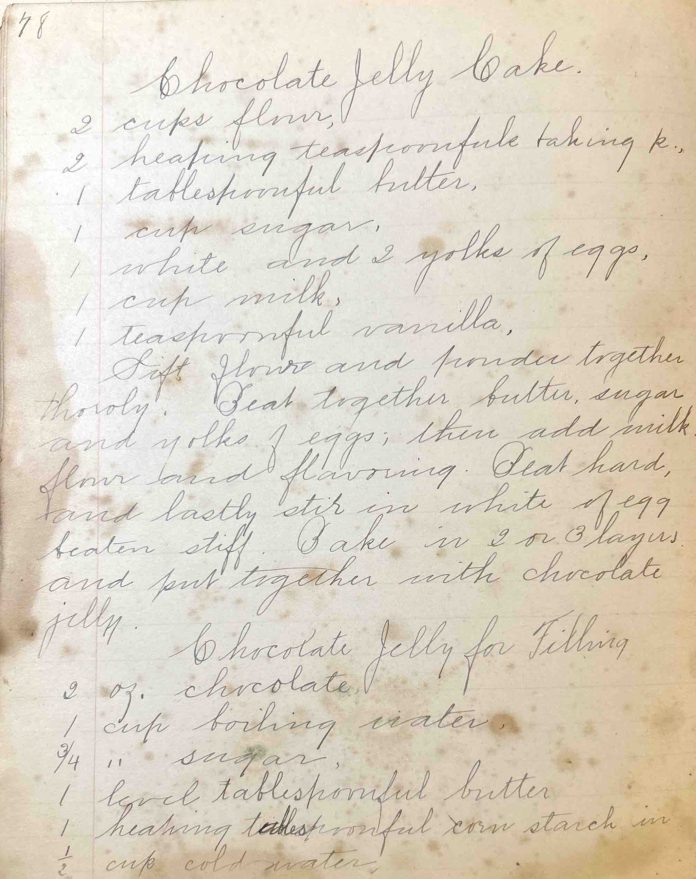 78
Chocolate Jelly Cake.
2 cups flour,
2 heaping teaspoonfuls baking p.,
1 tablespoonful butter,
1 cup sugar,
1 white and 2 yolks of eggs,
1 cup milk,
1 teaspoonful vanilla,
Sift flour and powder together
thoroly. Beat together butter, sugar
and yolks of eggs; then add milk
flour and flavoring. Beat hard,
and lastly stir in white of egg
beaten stiff. Bake in 2 or 3 layers
and put together with chocolate
jelly.
Chocolate Jelly for Filling
2 oz. chocolate
1 cup boiling water,
3/4 " sugar,
1 level tablespoonful butter
1 heaping tablespoonful corn starch in
1/2 cup cold water,